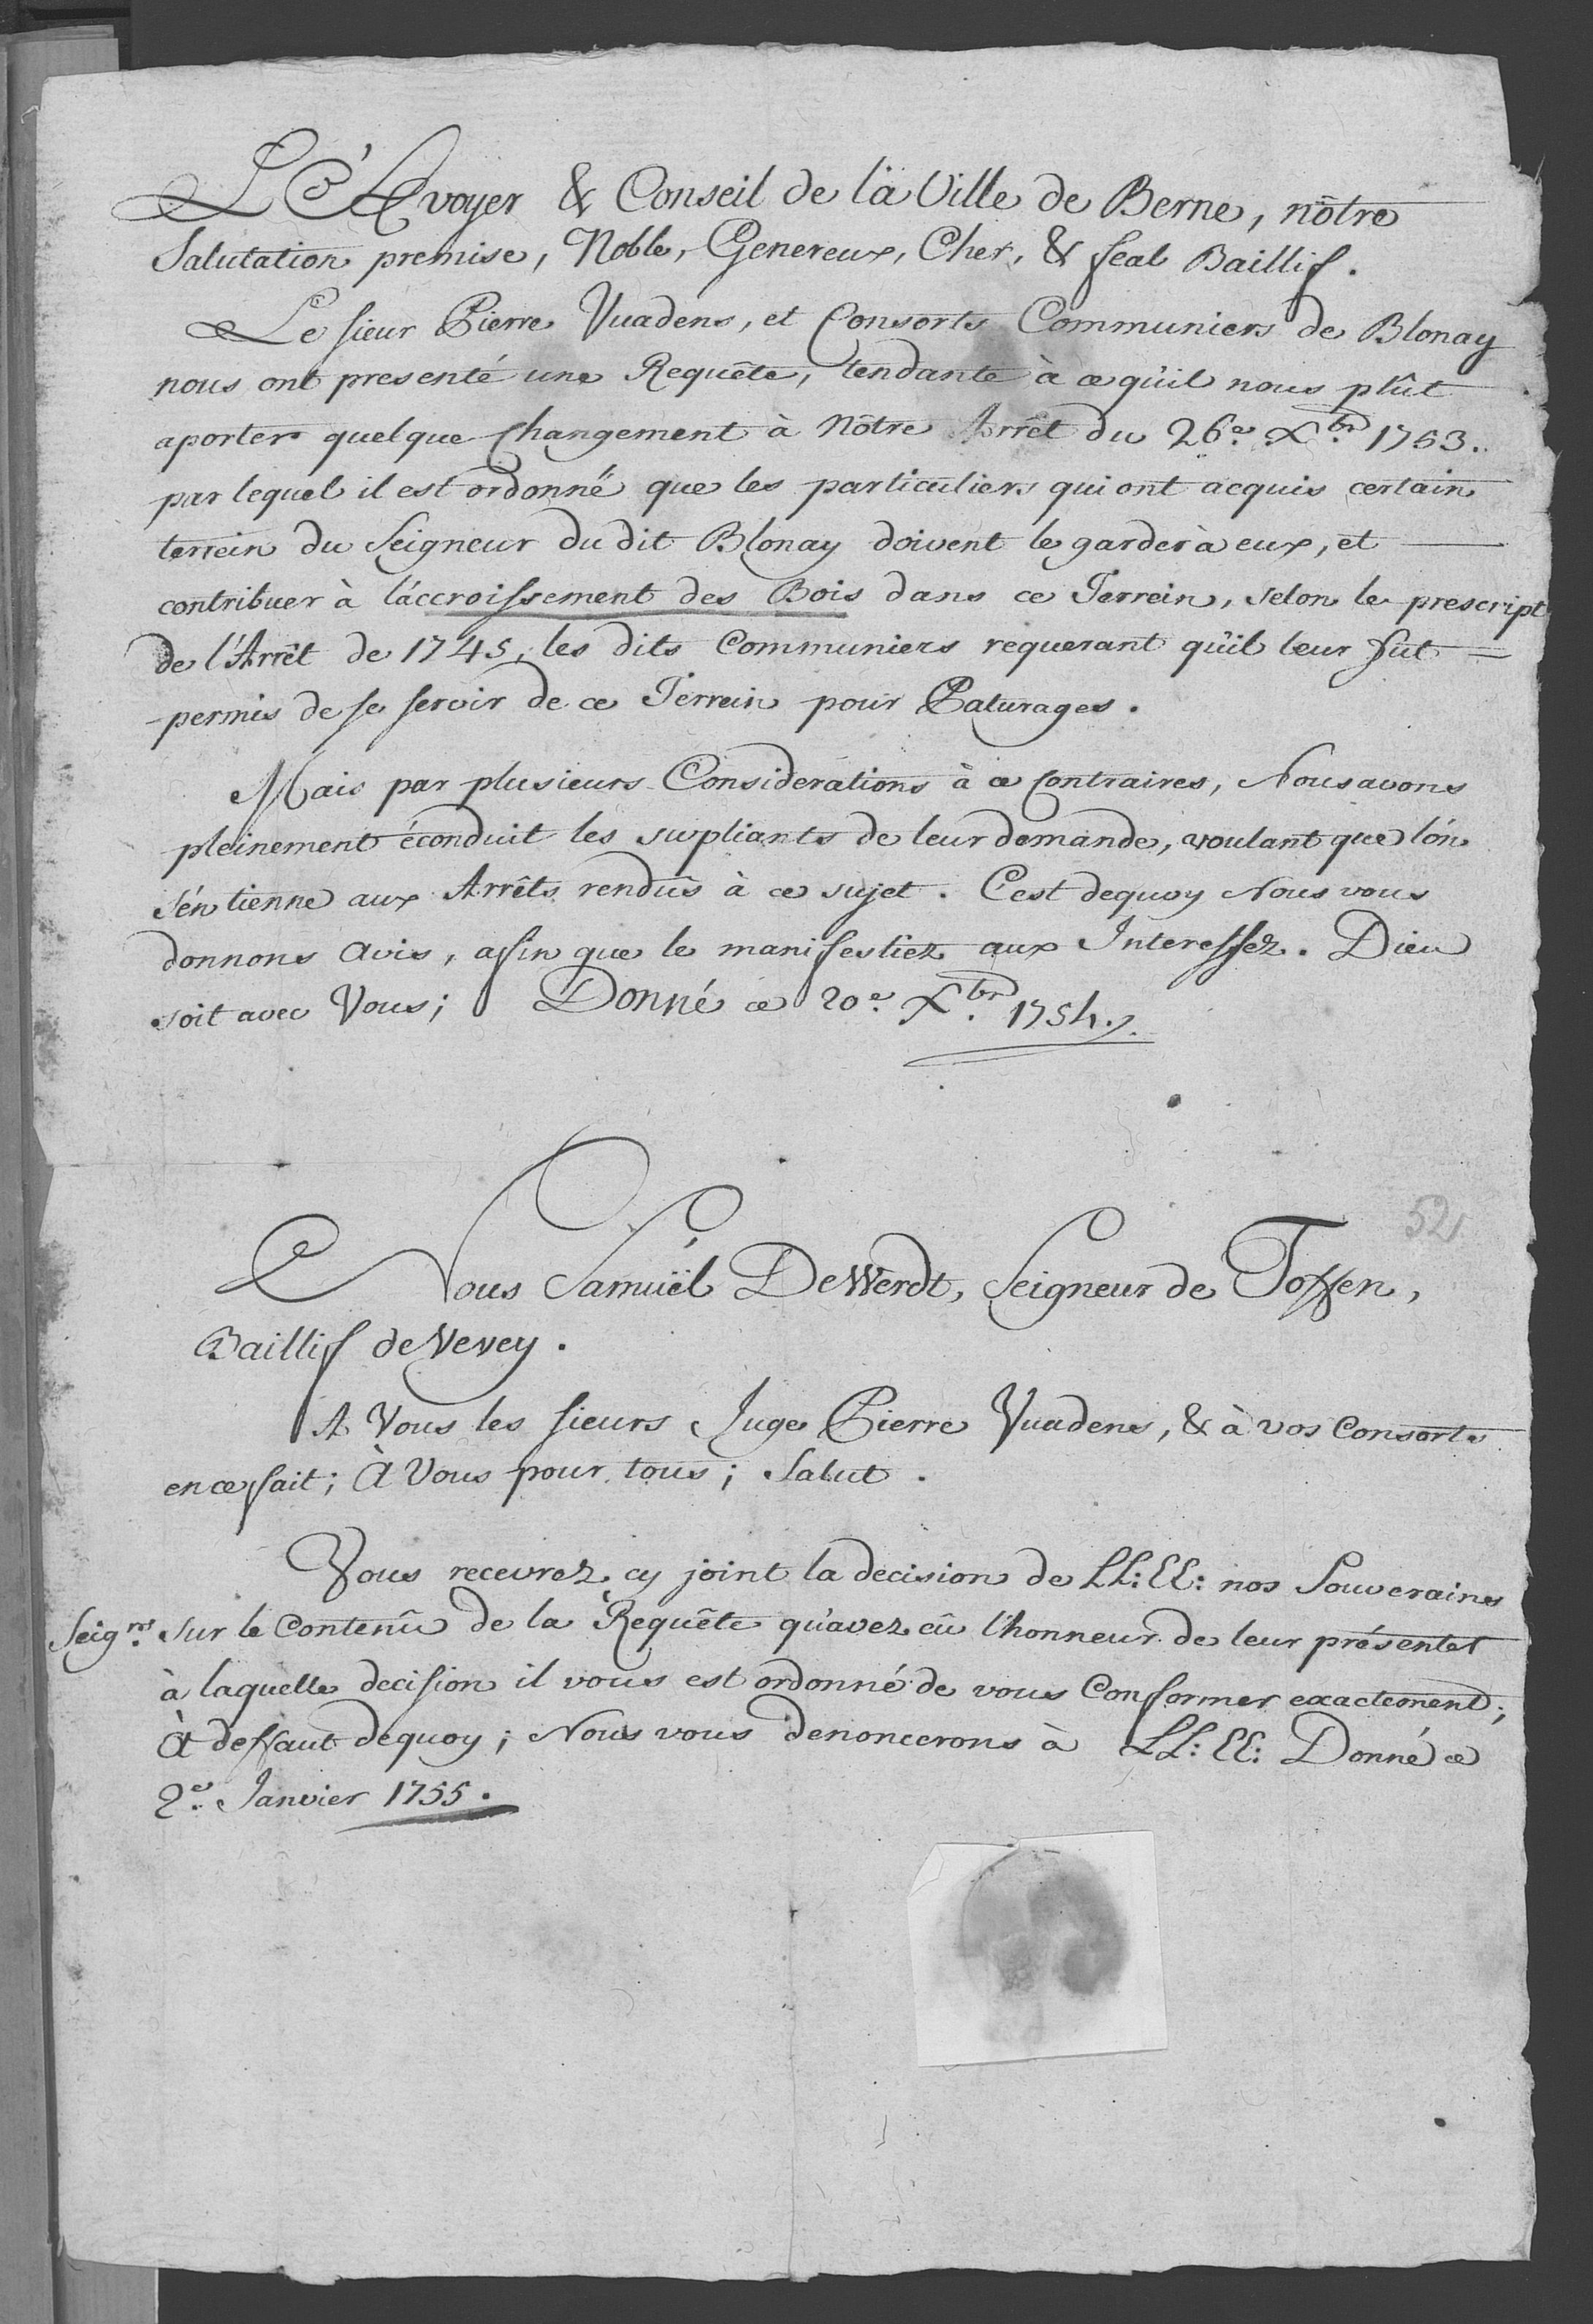 L'Avoyer & Conseil de la Ville de Berne, nôtre
Salutation premise, Noble, Genereux, Cher, & feal Baillif.
Le sieur Pierre Vuadens, et Consorts Communiers de Blonay
nous ont presenté une Requête, tendante à ce qu'il nous plût
aporter quelque Changement à Nôtre Arrêt du 26.e Xbr. 1753.
par lequel il est ordonné que les particuliers qui ont acquis certain
terrein du Seigneur du dit Blonay doivent le garder à eux, et
contribuer à l'accroissement des Bois dans ce Terrein, selon le prescript
de l'Arrêt de 1745, les dits Communiers requerant qu'il leur fut =
permis de se servir de ce Terrein pour Paturages.
Mais par plusieurs Considerations à ce Contraires, Nous avons
pleinement éconduit les supliants de leur demande, voulant que l'on
s'en tienne aux Arrêts rendus à ce sujet. C'est dequoy Nous vous
donnons avis, affin que le manifestiez aux Interessez. Dieu
soit avec Vous; Donné ce 20.e Xbr. 1754.
52
Nous Samuël DeWerdt, Seigneur de Toffen,
Baillif de Vevey.
A Vous les sieurs Juge Pierre Vuadens, & à vos Consorts
en ce fait; À Vous pour tous; Salut.
Vous recevrez cy joint la decision de LL: EE: nos Souverains
Seigrs. sur le Contenû de la Requête qu'avez eû l'honneur de leur présenter
à laquelle decision il vous est ordonné de vous Conformer exactement;
À deffaut dequoy; Nous vous denoncerons à LL: EE: Donné ce
2.e Janvier 1755.